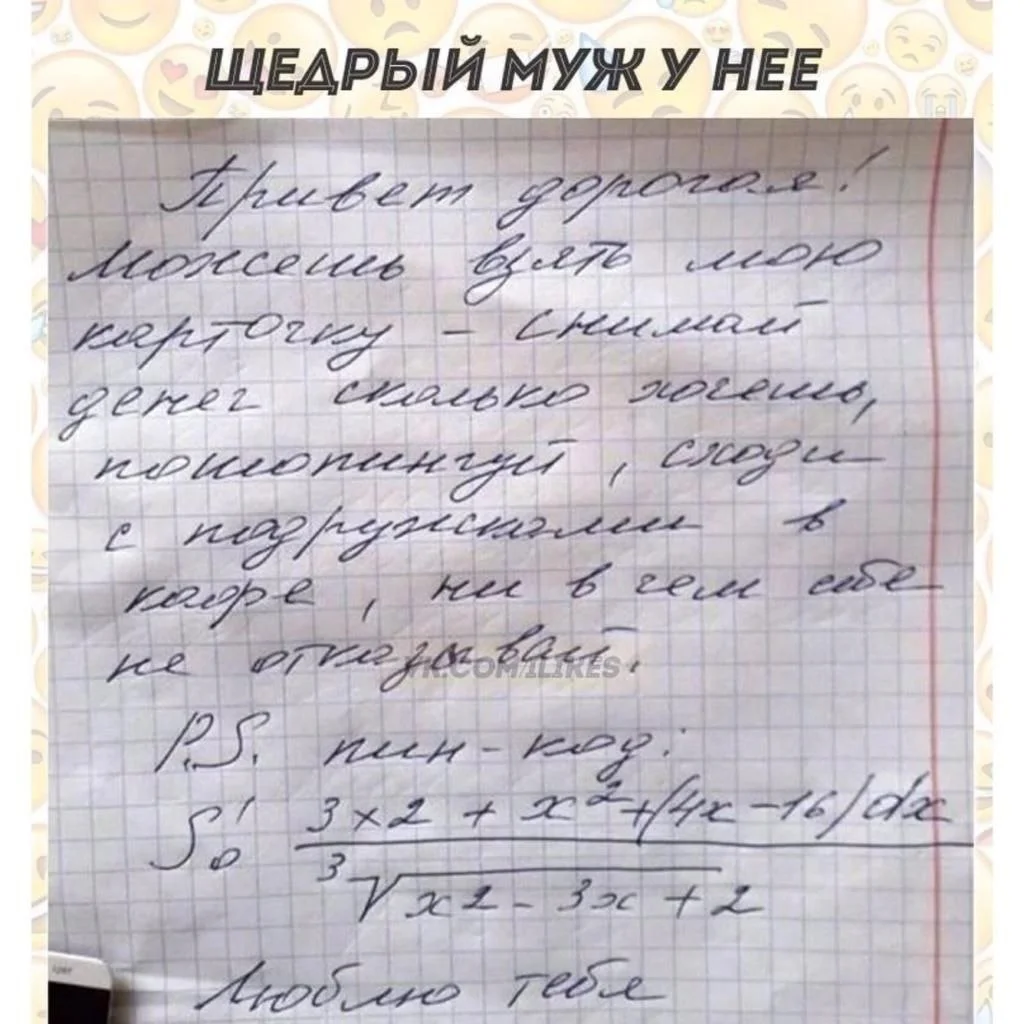 ЩЕДРЫЙ МУЖ У НЕЕ
Привет дорогая!
Можешь взять мою
карточку - снимай
денег сколько хочешь,
пошопингуй, сходи
с подружками в
кафе, ни в чем себе
не отказывай.
VK.COM/ILIKES
P.S. пин-код:
∫₀¹ 3x2 + x² + (4x - 16) dx
³√x2 - 3x + 2
Люблю тебя